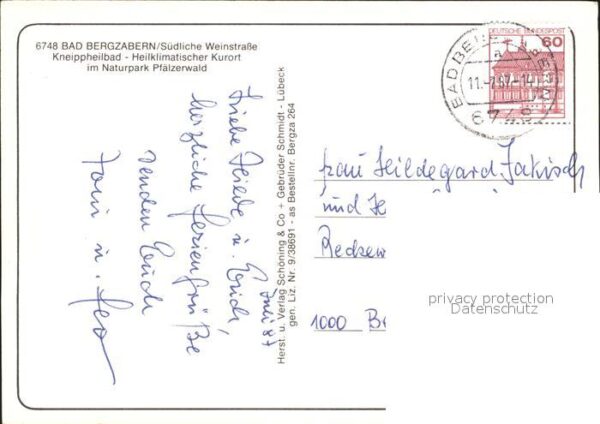 6748 BAD BERGZABERN/Südliche Weinstraße
Kneippheilbad - Heilklimatischer Kurort
im Naturpark Pfälzerwald
Juli 87
Liebe Heide u. Erich,
herzliche Feriengrüße
senden Euch
Toni u. Leo
Herst. u. Verlag Schöning & Co + Gebrüder Schmidt - Lübeck
gen. Liz. Nr. 9/38691 - as Bestellnr. Bergza 264
DEUTSCHE BUNDESPOST
60
BAD BERGZABERN
a
11.-7.87-14
6748
Frau Hildegard
und
1000
privacy protection
Datenschutz